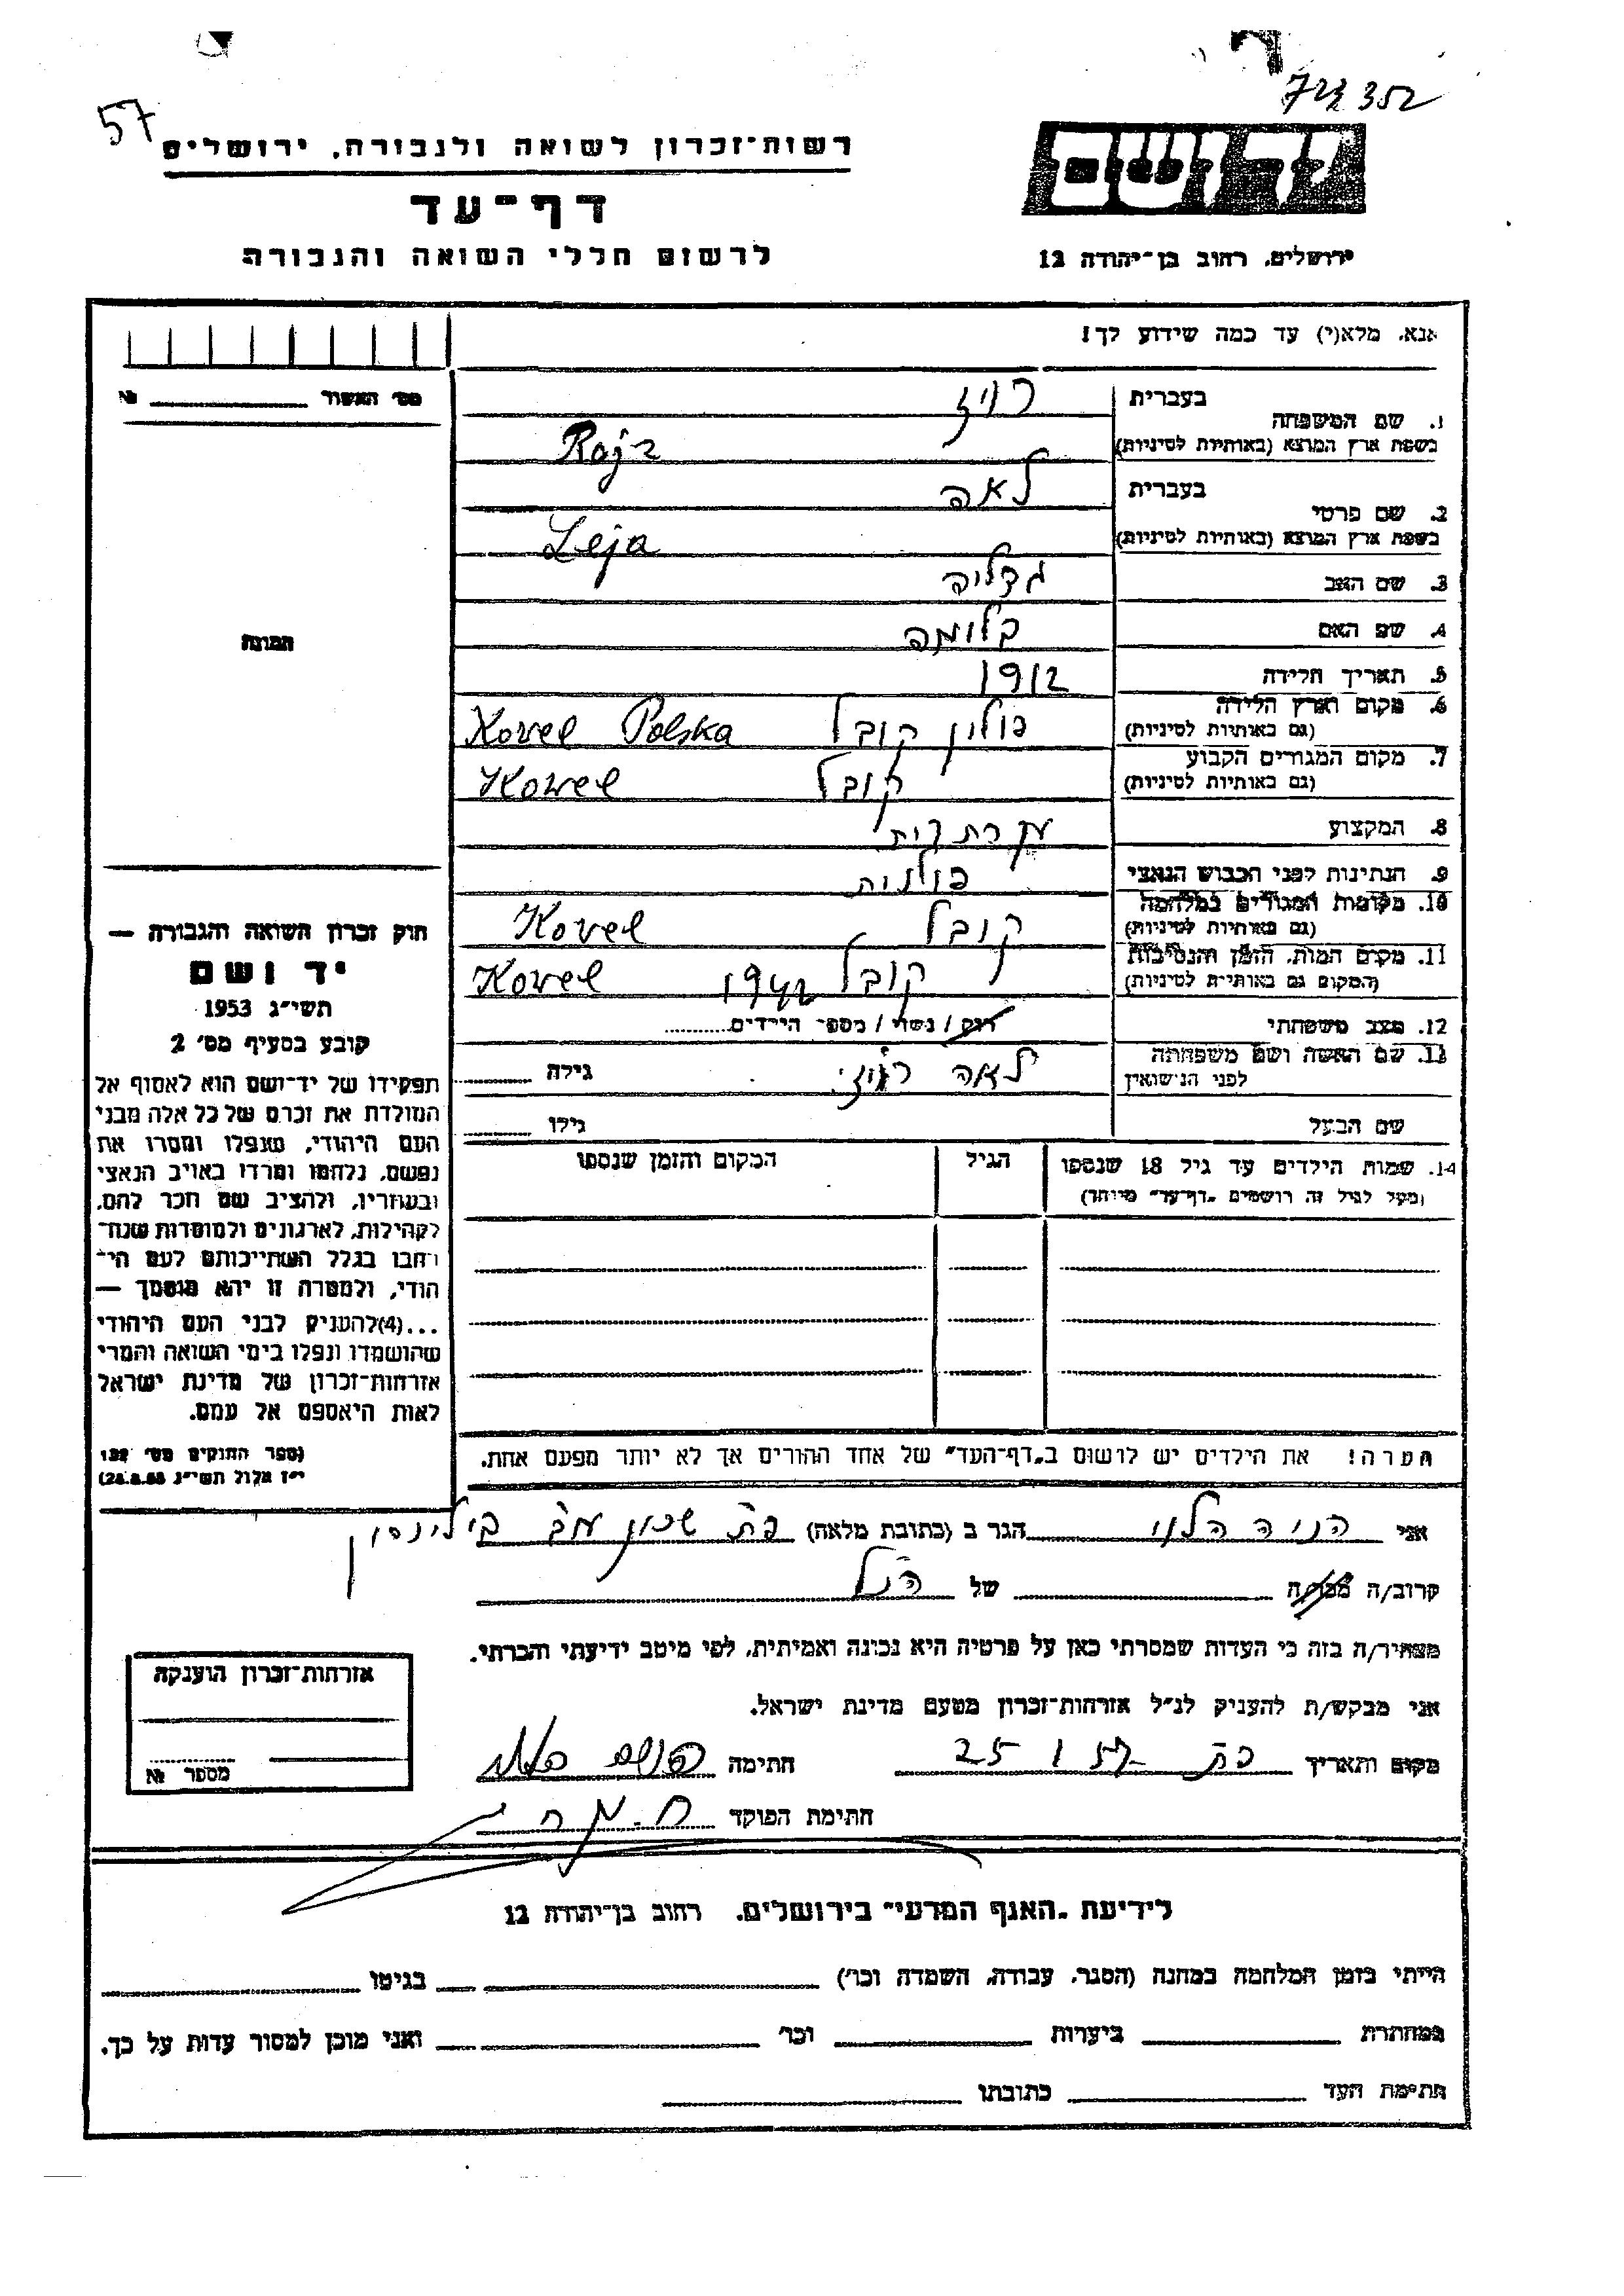 57
352
רשות־זכרון לשואה ולגבורה, ירושלים
דף־עד
לרשום חללי השואה והגבורה
יד ושם
ירושלים, רחוב בן־יהודה 12
אנא, מלא(י) עד כמה שידוע לך!
מס׳ האשור № 
1. שם המשפחה בעברית רויז
בשפת ארץ המוצא (באותיות לטיניות) Rojz
2. שם פרטי בעברית לאה
בשפת ארץ המוצא (באותיות לטיניות) Leja
3. שם האב גדליה
4. שם האם בלומה
5. תאריך הלידה 1912
6. מקום וארץ הלידה (גם באותיות לטיניות) פולין קובל Kovel Polska
7. מקום המגורים הקבוע (גם באותיות לטיניות) קובל Kowel
8. המקצוע עקרת בית
9. הנתינות לפני הכבוש הנאצי פולנית
10. מקומות המגורים במלחמה (גם באותיות לטיניות) קובל Kovel
11. מקום המות, הזמן והנסיבות (המקום גם באותיות לטיניות) קובל 1942 Kovel
12. מצב משפחתי רווק / נשוי / מספר הילדים
13. שם האשה ושם משפחתה לפני הנישואין לאה רויז גילה
שם הבעל גילו
14. שמות הילדים עד גיל 18 שנספו הגיל המקום והזמן שנספו
(מעל לגיל זה רושמים „דף־עד״ מיוחד)
הערה! את הילדים יש לרשום ב„דף־העד״ של אחד ההורים אך לא יותר מפעם אחת.
התמונה
חוק זכרון השואה והגבורה —
יד ושם
תשי״ג 1953
קובע בסעיף מס׳ 2
תפקידו של יד־ושם הוא לאסוף אל
המולדת את זכרם של כל אלה מבני
העם היהודי, שנפלו ומסרו את
נפשם, נלחמו ומרדו באויב הנאצי
ובעוזריו, ולהציב שם וזכר להם,
לקהילות, לארגונים ולמוסדות שנח־
רבו בגלל השתייכותם לעם הי־
הודי, ולמטרה זו יהא מוסמך —
...(4)להעניק לבני העם היהודי
שהושמדו ונפלו בימי השואה והמרי
אזרחות־זכרון של מדינת ישראל
לאות היאספם אל עמם.
(ספר החוקים מס׳ 132
י״ז אלול תשי״ג 28.8.53)
אני הניה הלוי הגר ב (כתובת מלאה) פ״ת שכון בילינסון
קרוב/ה מכר/ה של הנ״ל
מצהיר/ה בזה כי העדות שמסרתי כאן על פרטיה היא נכונה ואמיתית, לפי מיטב ידיעתי והכרתי.
אני מבקש/ת להעניק לנ״ל אזרחות־זכרון מטעם מדינת ישראל.
מקום ותאריך פ״ת 25 חתימה
חתימת הפוקד
אזרחות־זכרון הוענקה
מספר №
לידיעת „האגף המדעי״ בירושלים, רחוב בן־יהודה 12
הייתי בזמן המלחמה במחנה (הסגר, עבודה, השמדה וכו׳) בגיטו
במחתרת ביערות וכו׳ ואני מוכן למסור עדות על כך.
חתימת העד כתובתו